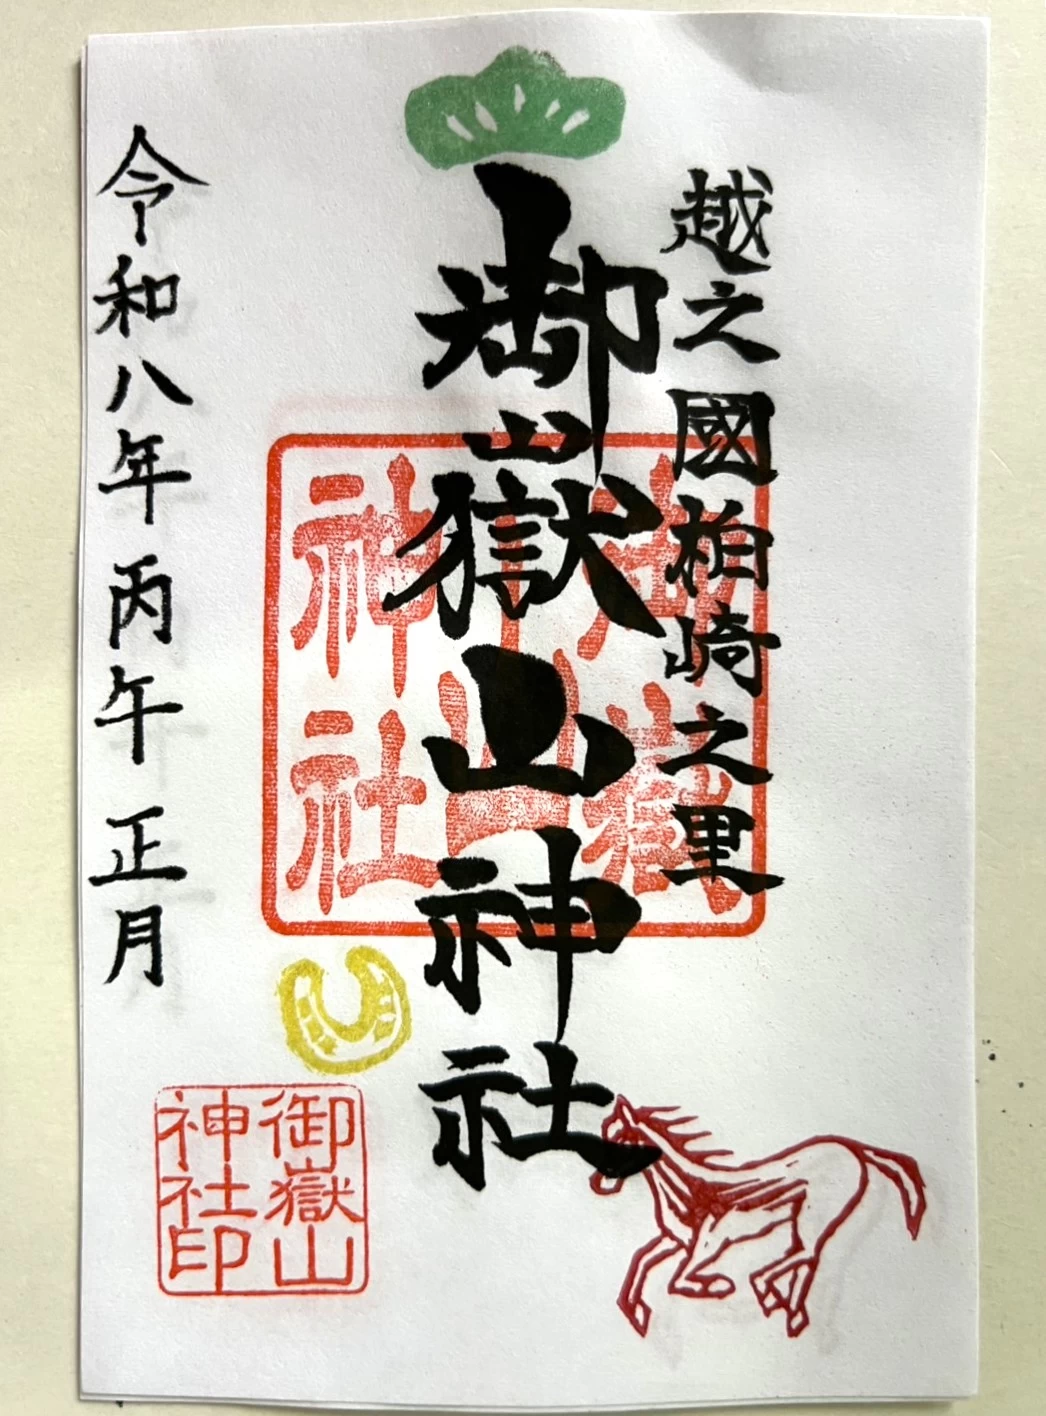 越之國柏崎之里
御嶽山神社
令和八年丙午正月
御嶽
山
神社
御嶽山
神社印